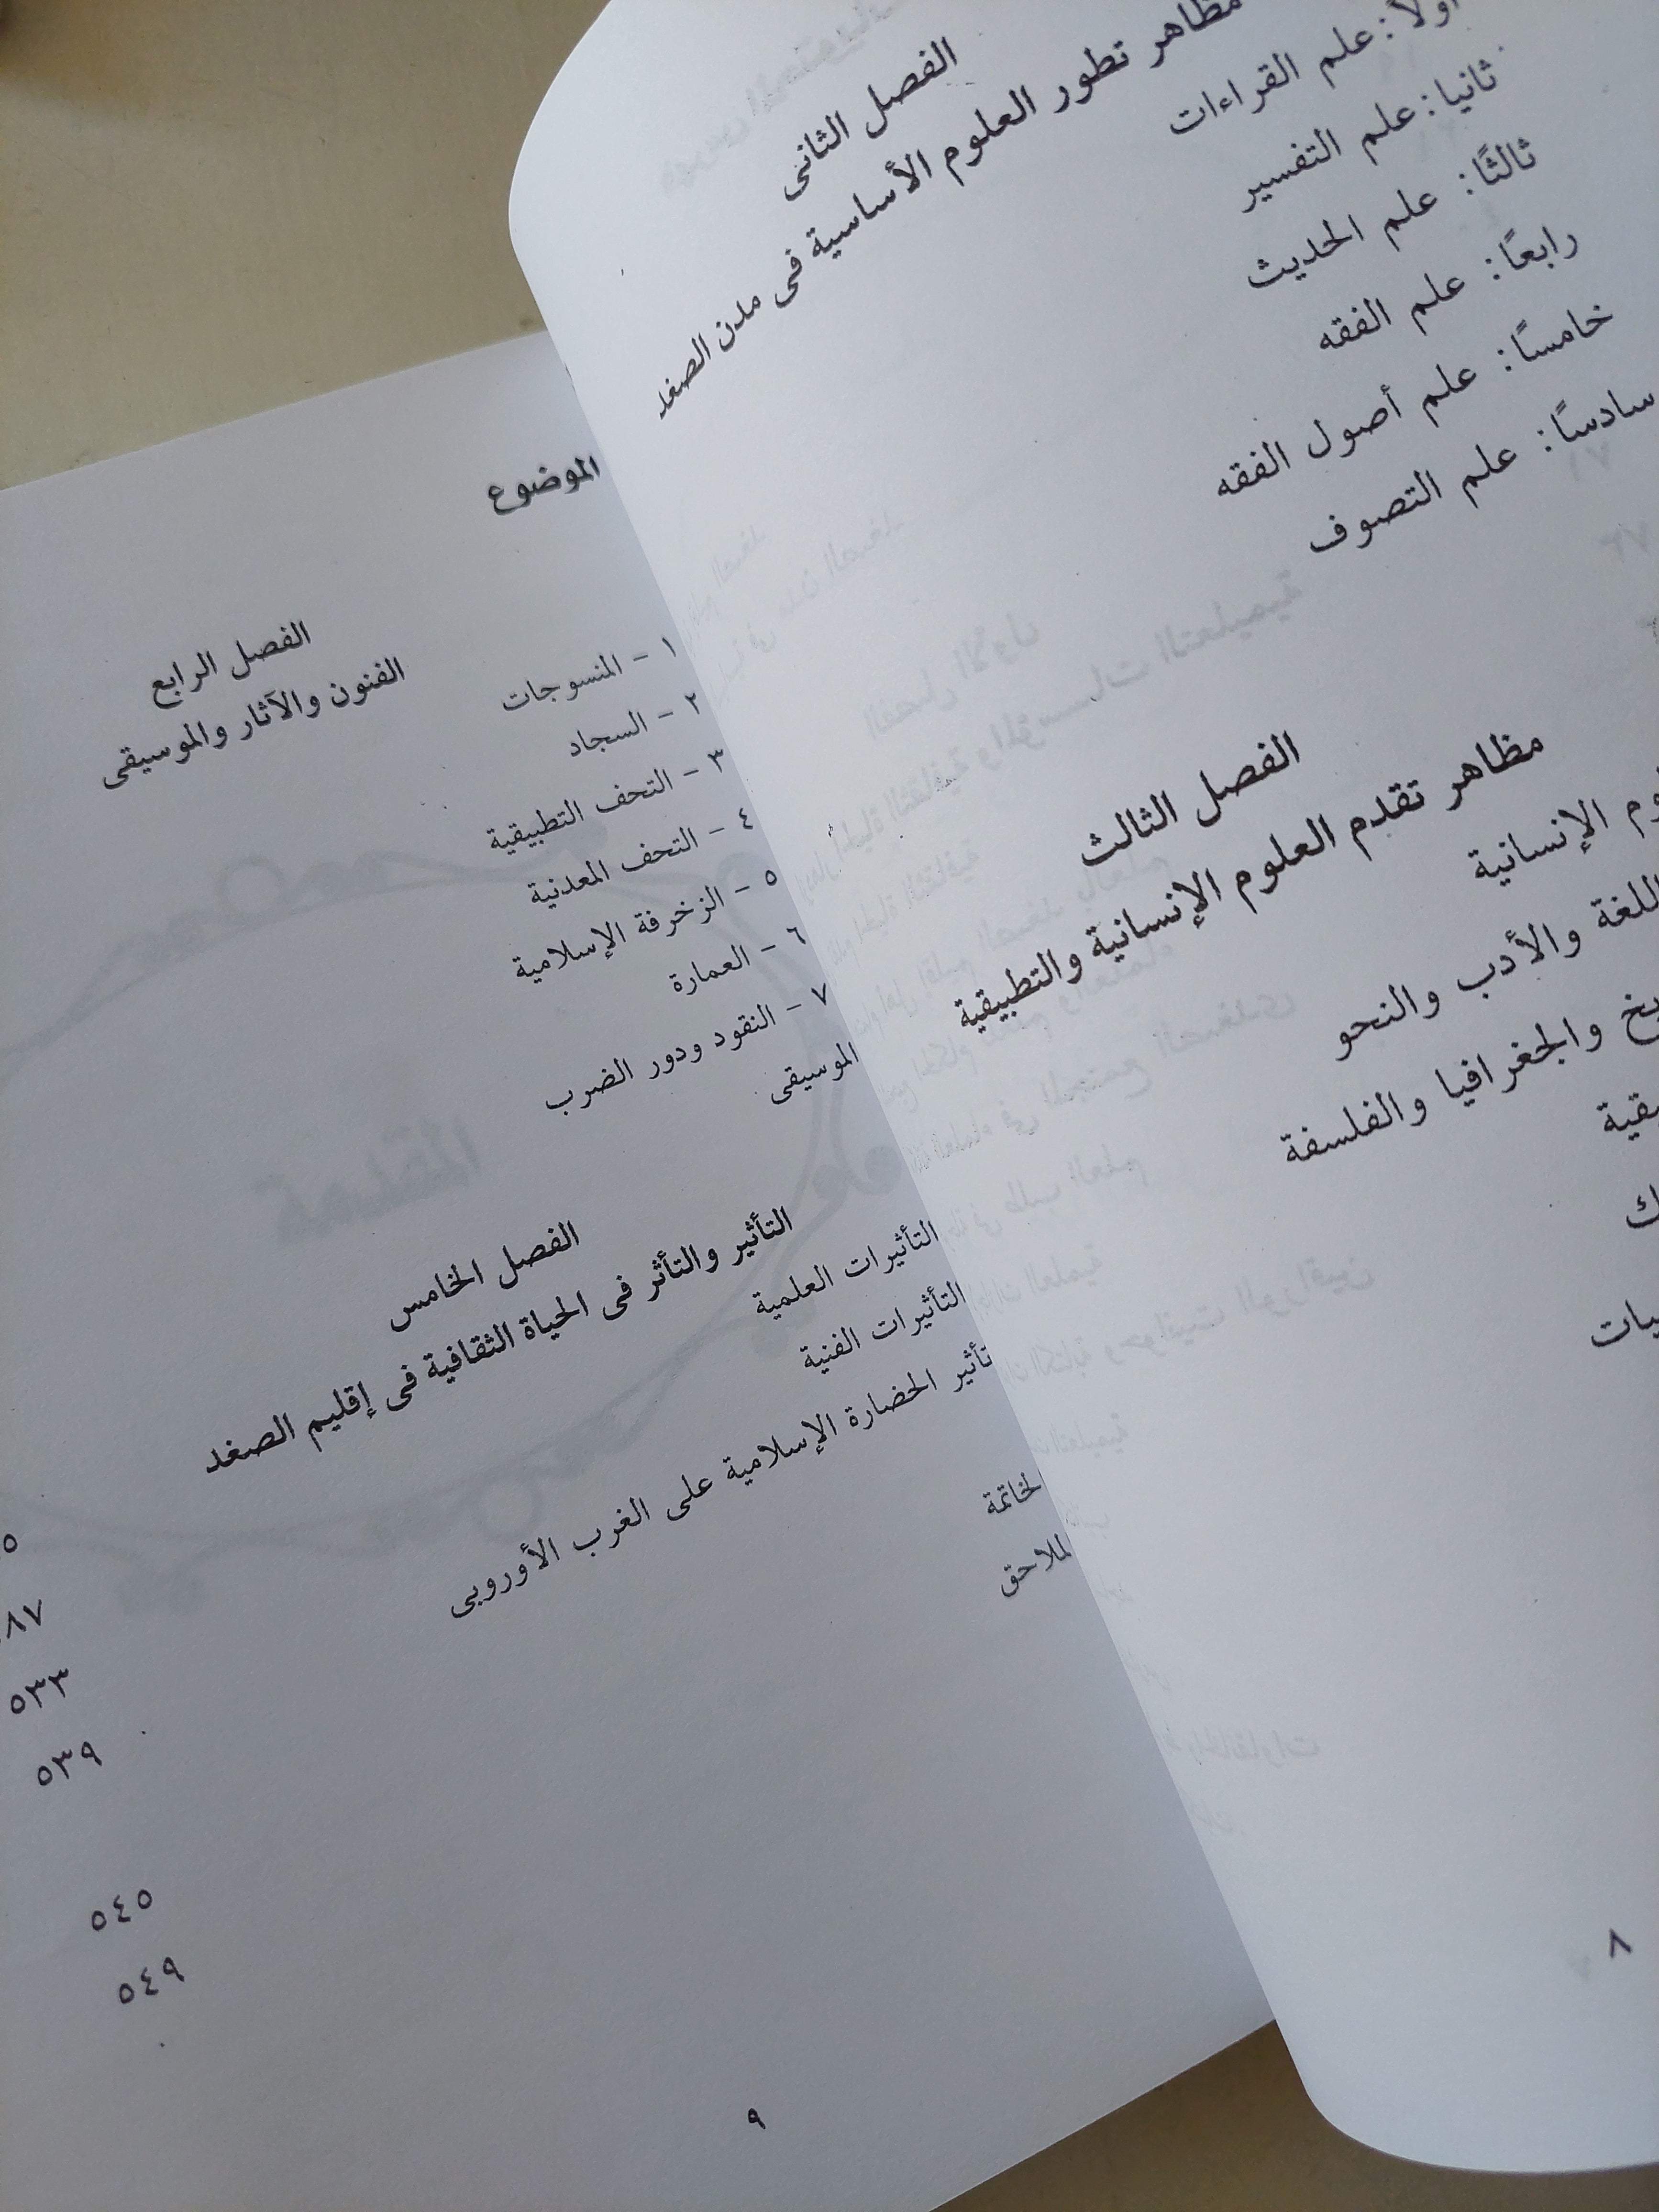 الفصل الثانى
مظاهر تطور العلوم الأساسية فى مدن الصغد
أولاً: علم القراءات
ثانيا: علم التفسير
ثالثًا: علم الحديث
رابعًا: علم الفقه
خامسًا: علم أصول الفقه
سادسًا: علم التصوف
الفصل الثالث
مظاهر تقدم العلوم الإنسانية والتطبيقية
الإنسانية
اللغة والأدب والنحو
والجغرافيا والفلسفة
٨
الموضوع
الفصل الرابع
الفنون والآثار والموسيقى
١ - المنسوجات
٢ - السجاد
٣ - التحف التطبيقية
٤ - التحف المعدنية
٥ - الزخرفة الإسلامية
٦ - العمارة
٧ - النقود ودور الضرب
الموسيقى
الفصل الخامس
التأثير والتأثر فى الحياة الثقافية فى إقليم الصغد
التأثيرات العلمية
التأثيرات الفنية
تأثير الحضارة الإسلامية على الغرب الأوروبى
الخاتمة
الملاحق
٥٣٣
٥٣٩
٥٤٥
٥٤٩
٩